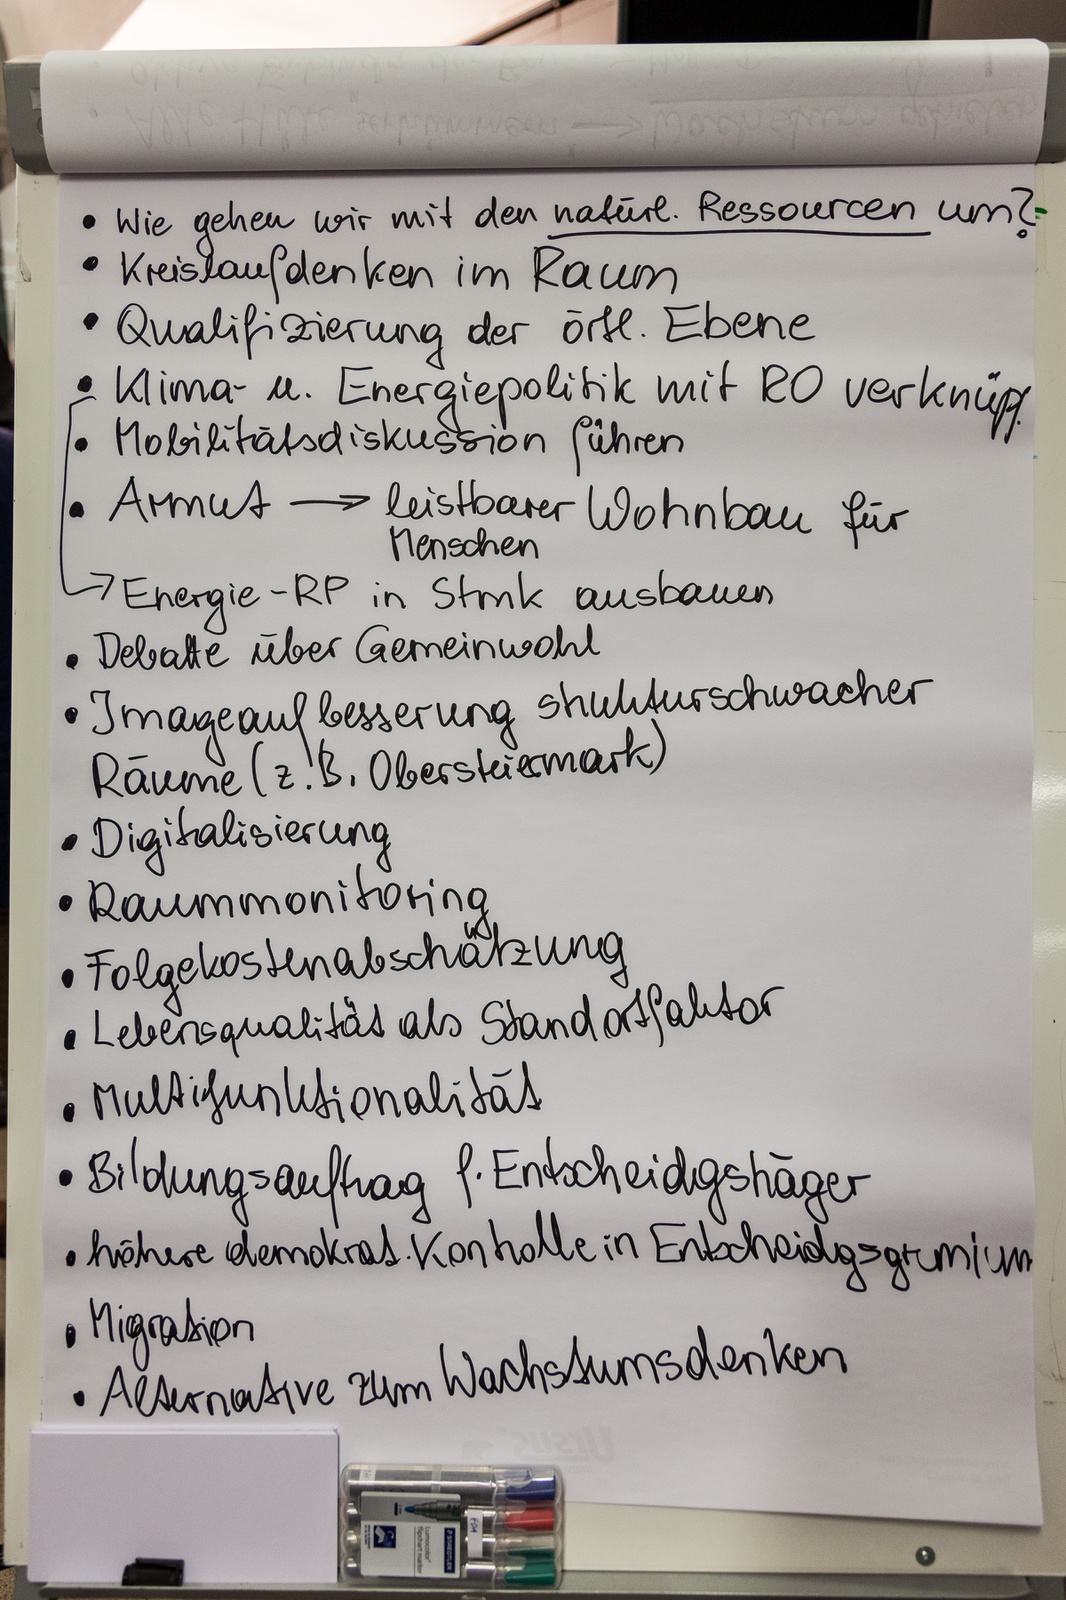 • Wie gehen wir mit den natürl. Ressourcen um?
• Kreislaufdenken im Raum
• Qualifizierung der örtl. Ebene
• Klima- u. Energiepolitik mit RO verknüpf.
• Mobilitätsdiskussion führen
• Armut → leistbarer Wohnbau für
Menschen
→ Energie-RP in Stmk ausbauen
• Debatte über Gemeinwohl
• Imageaufbesserung strukturschwacher
Räume (z.B. Obersteiermark)
• Digitalisierung
• Raummonitoring
• Folgekostenabschätzung
• Lebensqualität als Standortfaktor
• Multifunktionalität
• Bildungsauftrag f. Entscheidgsträger
• höhere demokrat. Kontrolle in Entscheidgsgremium
• Migration
• Alternative zum Wachstumsdenken
Ursus
STAEDTLER
Lumocolor
flipchart marker